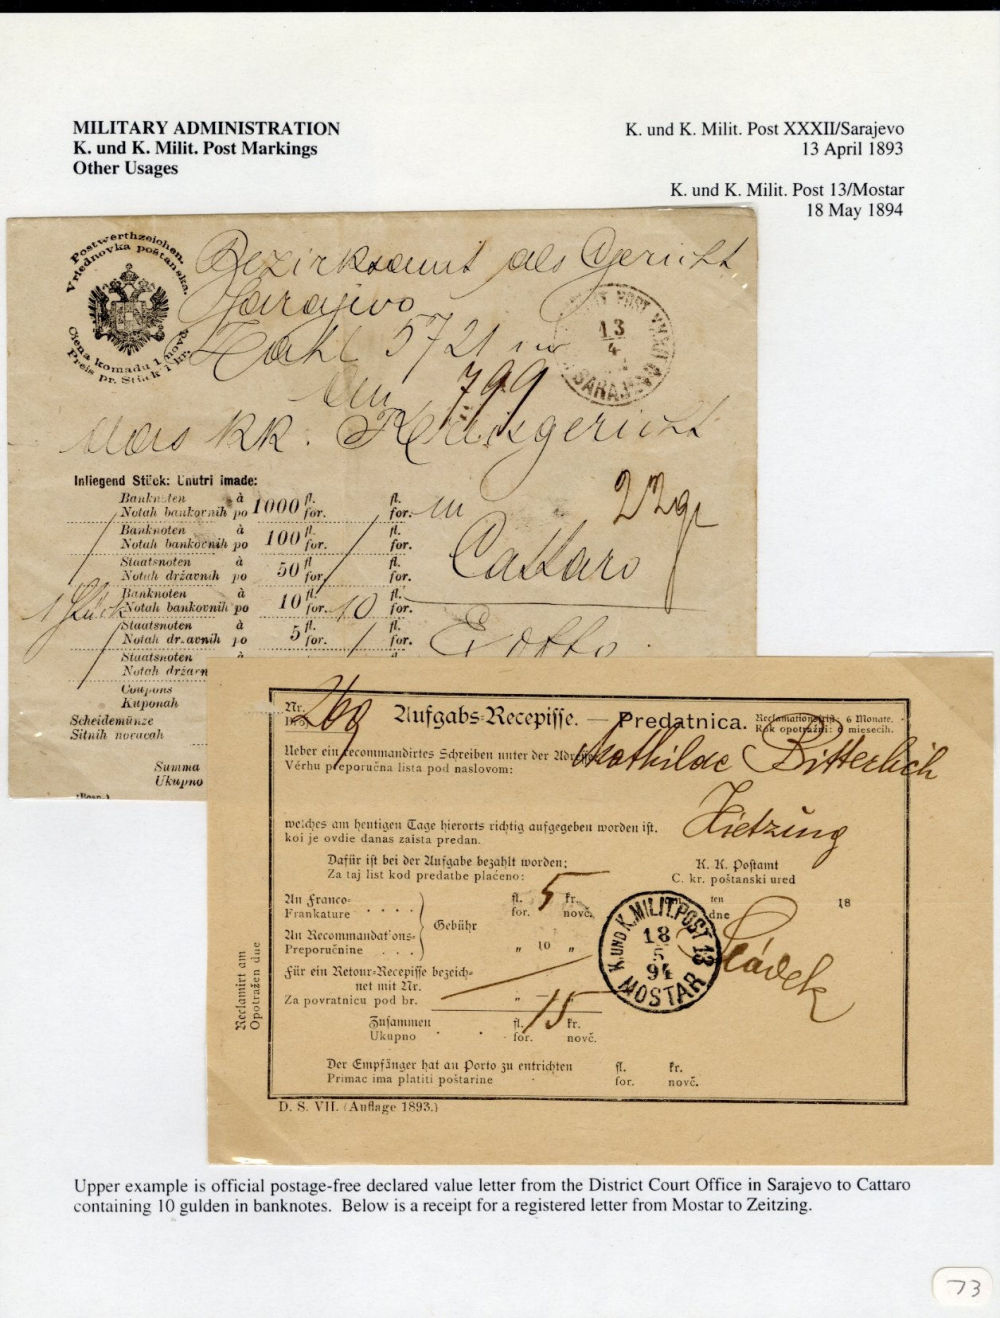 MILITARY ADMINISTRATION
K. und K. Milit. Post Markings
Other Usages
K. und K. Milit. Post XXXII/Sarajevo
13 April 1893
K. und K. Milit. Post 13/Mostar
18 May 1894
Postwerthzeichen.
Vriednovka poštanska.
Ciena komadu 1 novč.
Preis pr. Stück 1 kr.
Bezirksamt als Gericht
Sarajevo
Zahl 5721
POST XXXII
13
4
SARAJEVO
An 799
das kk. Kreisgericht
in
22 gr
Cattaro
Ex offo
Inliegend Stück: Unutri imade:
Banknoten à 1000 fl. fl.
Notah bankovnih po for. for.
Banknoten à 100 fl. fl.
Notah bankovnih po for. for.
Staatsnoten à 50 fl. fl.
Notah državnih po for. for.
1 Stück Banknoten à 10 fl. 10 fl.
Notah bankovnih po for. for.
Staatsnoten à 5 fl. fl.
Notah državnih po for. for.
Staatsnoten
Notah državn
Coupons
Kuponah
Scheidemünze
Sitnih novacah
Summa
Ukupno
Nr. 269
Aufgabs-Recepisse. — Predatnica.
Reclamationsfrist 6 Monate.
Rok opotražni: 6 miesecih.
Ueber ein recommandirtes Schreiben unter der Adresse Mathilde Bitterlich
Vèrhu preporučna lista pod naslovom:
Hietzing
welches am heutigen Tage hierorts richtig aufgegeben worden ist.
koi je ovdie danas zaista predan.
Dafür ist bei der Aufgabe bezahlt worden:
Za taj list kod predatbe plaćeno:
K. K. Postamt
C. kr. poštanski ured
An Franco- fl. 5 kr.
Frankature for. novč.
Gebühr
An Recommandat'ons-
Preporučnine „ 10 „
ten
dne
18
Sládek
K. UND K. MILIT. POST 13
18
5
94
MOSTAR
Für ein Retour-Recepisse bezeich-
net mit Nr.
Za povratnicu pod br. „ — „
Zusammen fl. 15 kr.
Ukupno for. novč.
Der Empfänger hat an Porto zu entrichten fl. kr.
Primac ima platiti poštarine for. novč.
Reclamirt am
Opotražen dne
D. S. VII. (Auflage 1893.)
Upper example is official postage-free declared value letter from the District Court Office in Sarajevo to Cattaro
containing 10 gulden in banknotes. Below is a receipt for a registered letter from Mostar to Zeitzing.
73